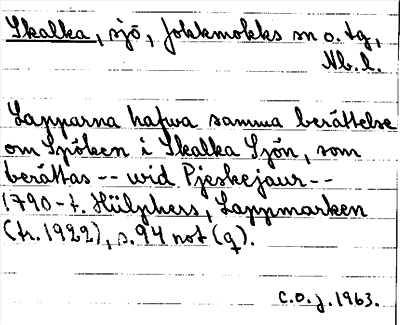 Skalka, sjö, Jokkmokks sn o. tg,
Nb. l.
Lapparna hafwa samma berättelse
om Spöken i Skalka Sjön, som
berättas -- wid Pjeskejaur --
1790-t. Hülphers, Lappmarken
(tr. 1922), s. 94 not (q).
C.O.J. 1963.